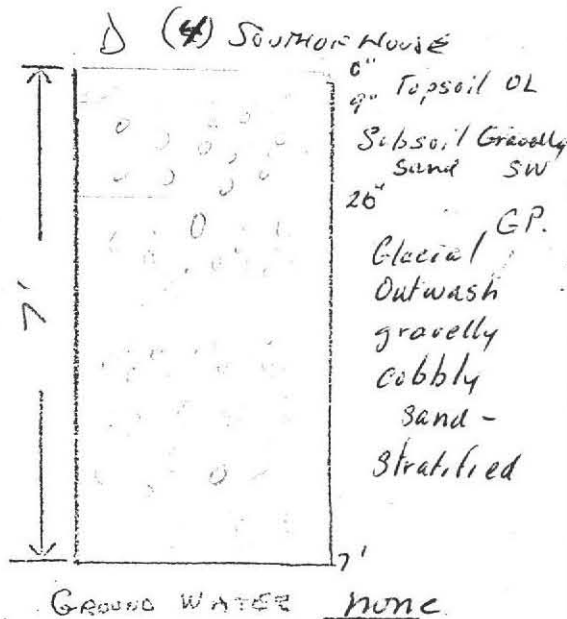 D (4) SOUTH OF HOUSE
0"
9" Topsoil OL
Subsoil Gravelly
Sand SW
26"
GP.
Glacial
Outwash
gravelly
cobbly
sand -
Stratified
7'
7'
GROUND WATER none